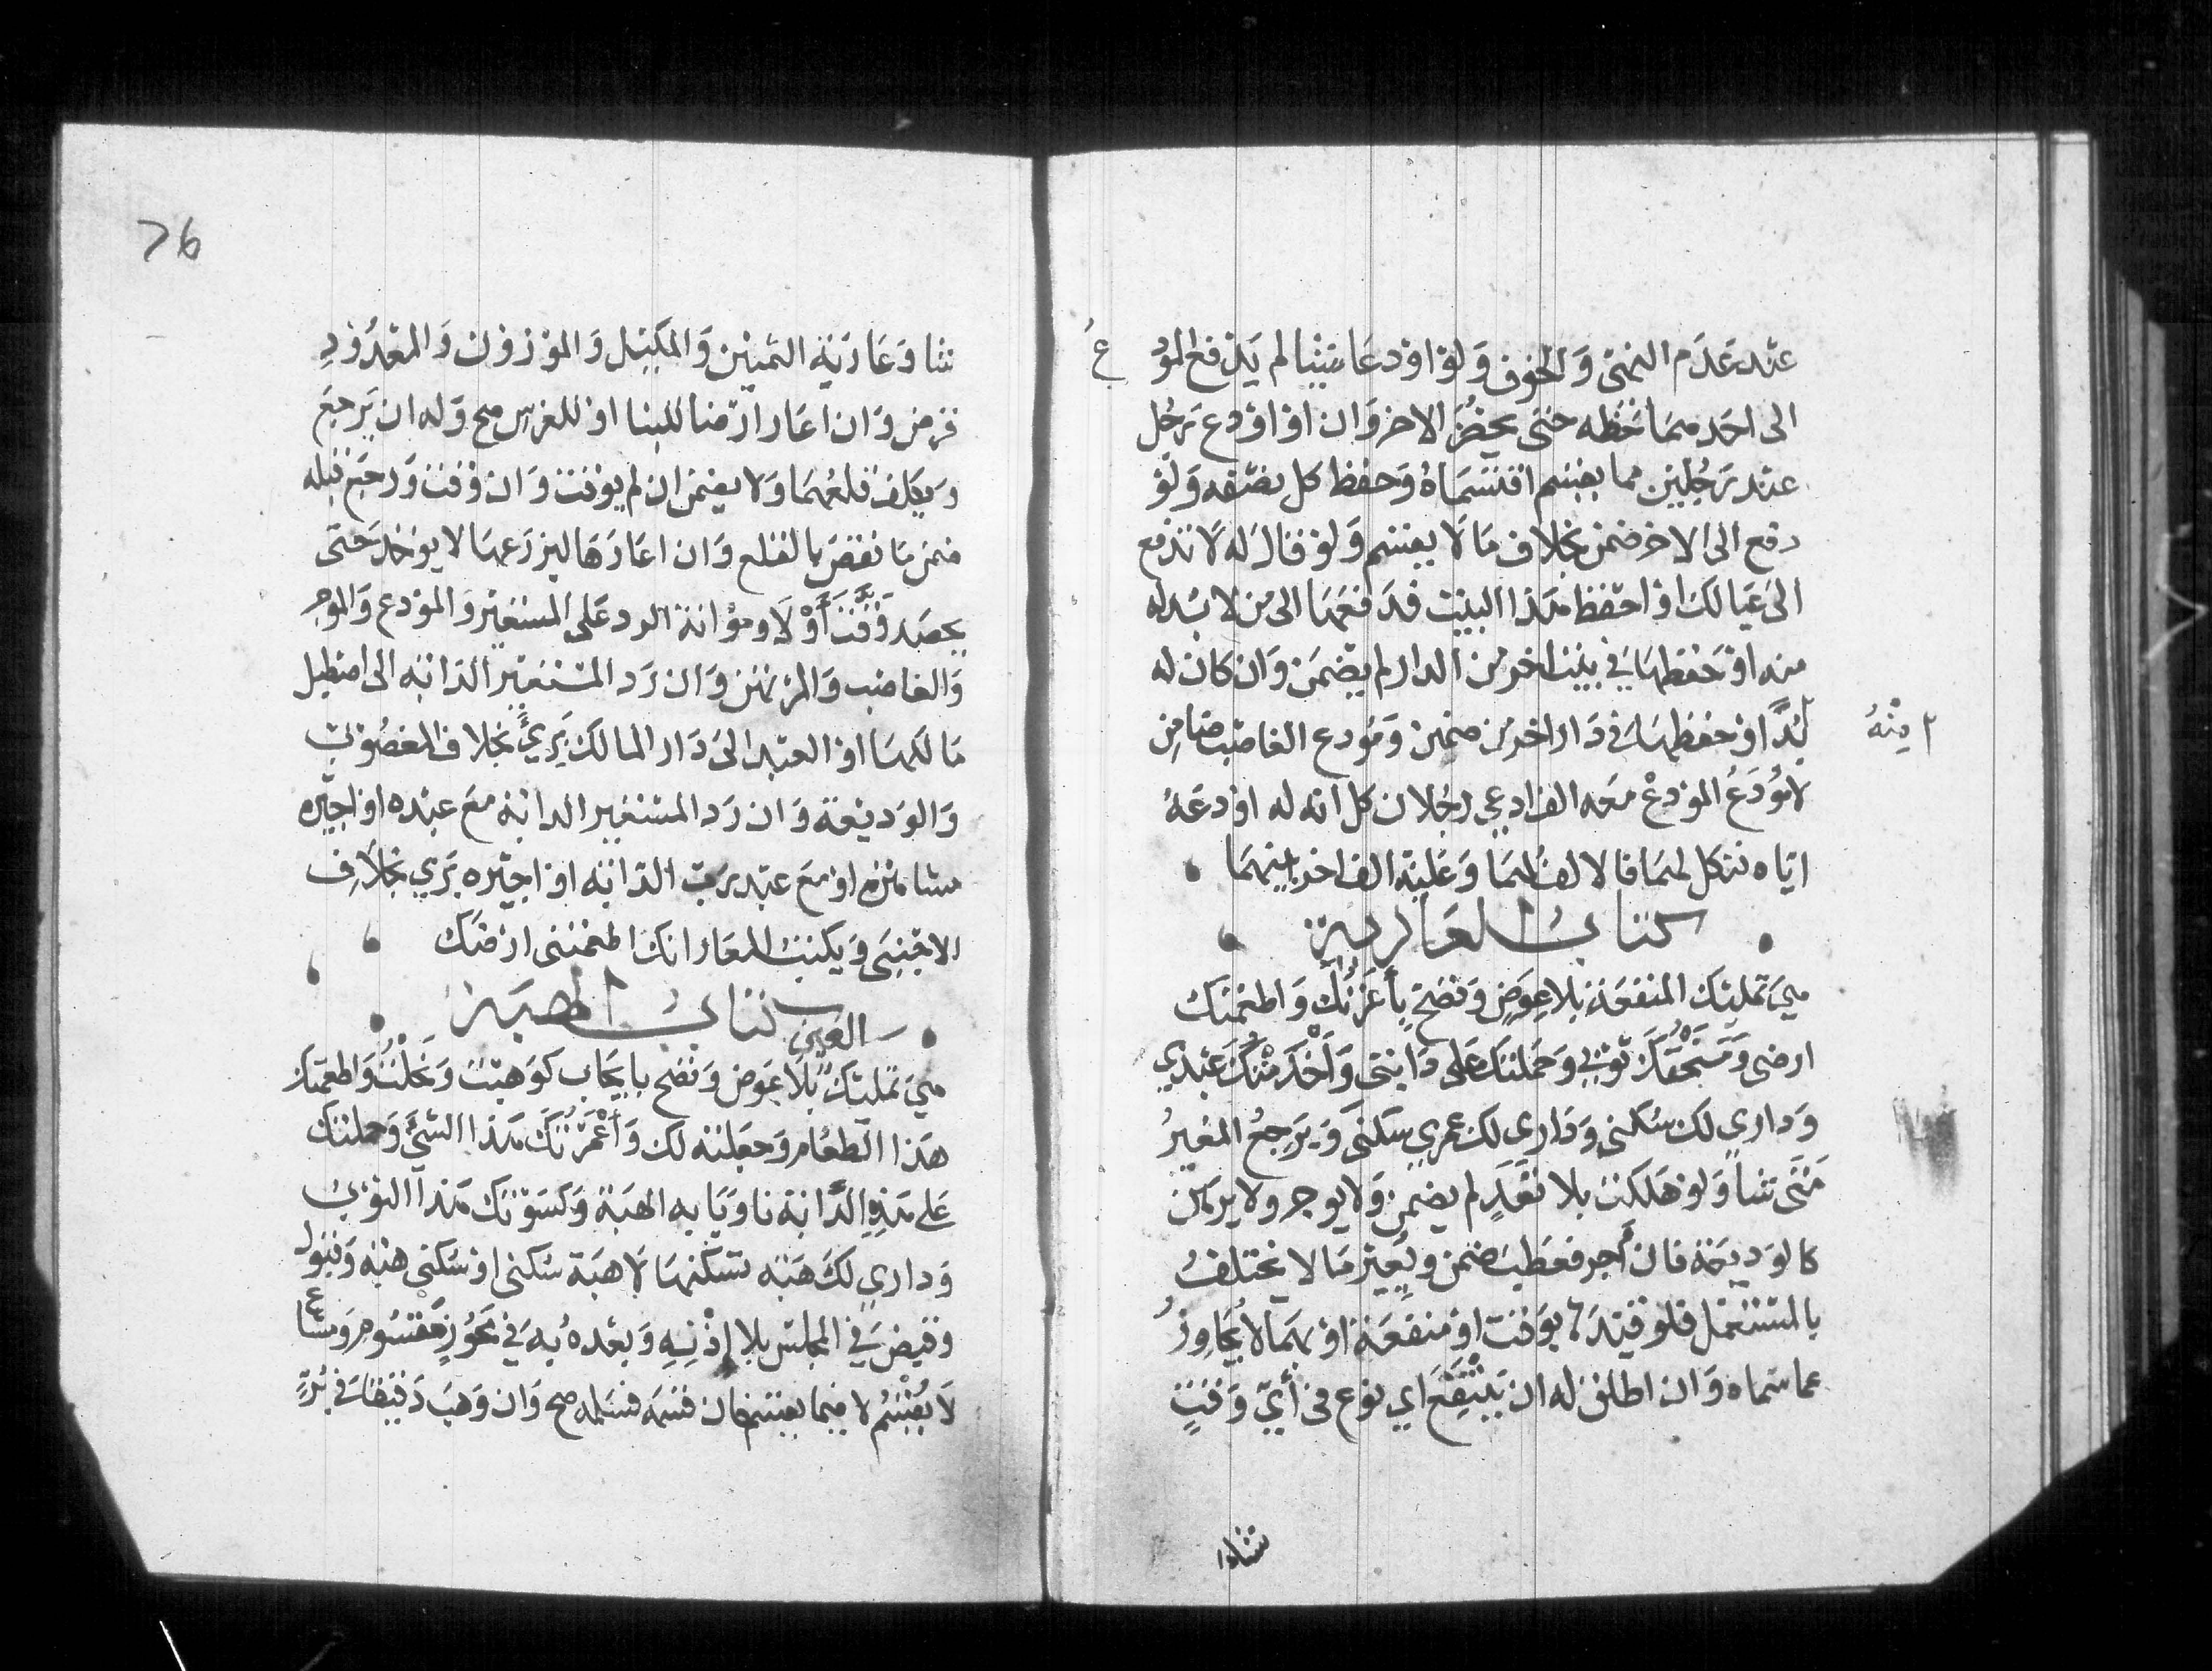 عند عدم النهى والخوف ولو اودعا شيئا لم يدفع المودع
الى احدهما حظه حتى يحضر الاخر وان اودع رجل
عند رجلين مما يقسم اقتسماه وحفظ كل نصفه ولو
دفع الى الاخر ضمن بخلاف ما لا يقسم ولو قال له لا تدفع
الى عيالك او احفظ هذا البيت فدفعها الى من لا بد له
منه او حفظها في بيت اخر من الدار لم يضمن وان كان له
منه
بد او حفظها في دار اخرى ضمن ومودع الغاصب ضامن
لا مودع المودع معه الف ادعى رجلان كل انه له اودعه
اياه فنكل لهما فالالف لهما وعليه الف اخر بينهما
كتاب العارية
هي تمليك المنفعة بلا عوض وتصح بأعرتك واطعمتك
ارضى ومنحتك ثوبي وحملتك على دابتى وأخدمتك عبدي
وداري لك سكنى وداري لك عمري سكنى ويرجع المعير
متى شا ولو هلكت بلا تعد لم يضمن ولا يوجر ولا يرهن
كالوديعة فان أجر فعطبت ضمن ويعير ما لا يختلف
بالمستعمل فلو قيدها بوقت او منفعة او بهما لا يجاوز
عما سماه وان اطلق له ان ينتفع اي نوع في أي وقت
شاو
76
شا وعارية الثمنين والمكيل والموزون والمعدود
قرض وان اعار ارضا للبنا او للغرس صح وله ان يرجع
ويكلف قلعهما ولا يضمن ان لم يوقت وان وقت ورجع قبله
ضمن ما نقص بالقلع وان اعارها ليزرعها لا يوخذ حتى
يحصد وقت أو لا ومؤانة الرد على المستعير والمودع والموجر
والغاصب والمرتهن وان رد المستعير الدابه الى اصطبل
مالكها او العبد الى دار المالك بري بخلاف المغصوب
والوديعة وان رد المستعير الدابة مع عبده او اجيره
مشاهرة او مع عبد رب الدابه او اجيره بري بخلاف
الاجنبى ويكتب المعار انك اطعمتنى ارضك
كتاب الهبة
العين
هي تمليك بلا عوض وتصح بايجاب كوهبت ونحلت واطعمتك
هذا الطعام وجعلته لك وأعمرتك هذا الشئ وحملتك
على هذه الدابة ناويا به الهبة وكسوتك هذا الثوب
وداري لك هبه تسكنها لا هبة سكنى او سكنى هبه وقبول
وقبض في المجلس بلا إذنه وبعده به في محوز مقسوم ومشاع
لا يقسم لا فيما يقسم فان قسمه فسلمه صح وان وهب دقيقا في بر